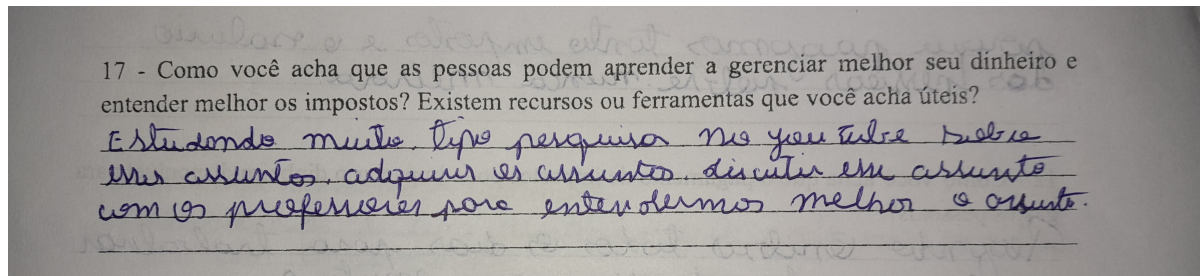 17 - Como você acha que as pessoas podem aprender a gerenciar melhor seu dinheiro e
entender melhor os impostos? Existem recursos ou ferramentas que você acha úteis?
Estudando muito, tipo pesquisa no you tube sobre
esses assuntos, adquirir os assuntos, discutir esse assunto
com os professores para entendermos melhor o assunto.